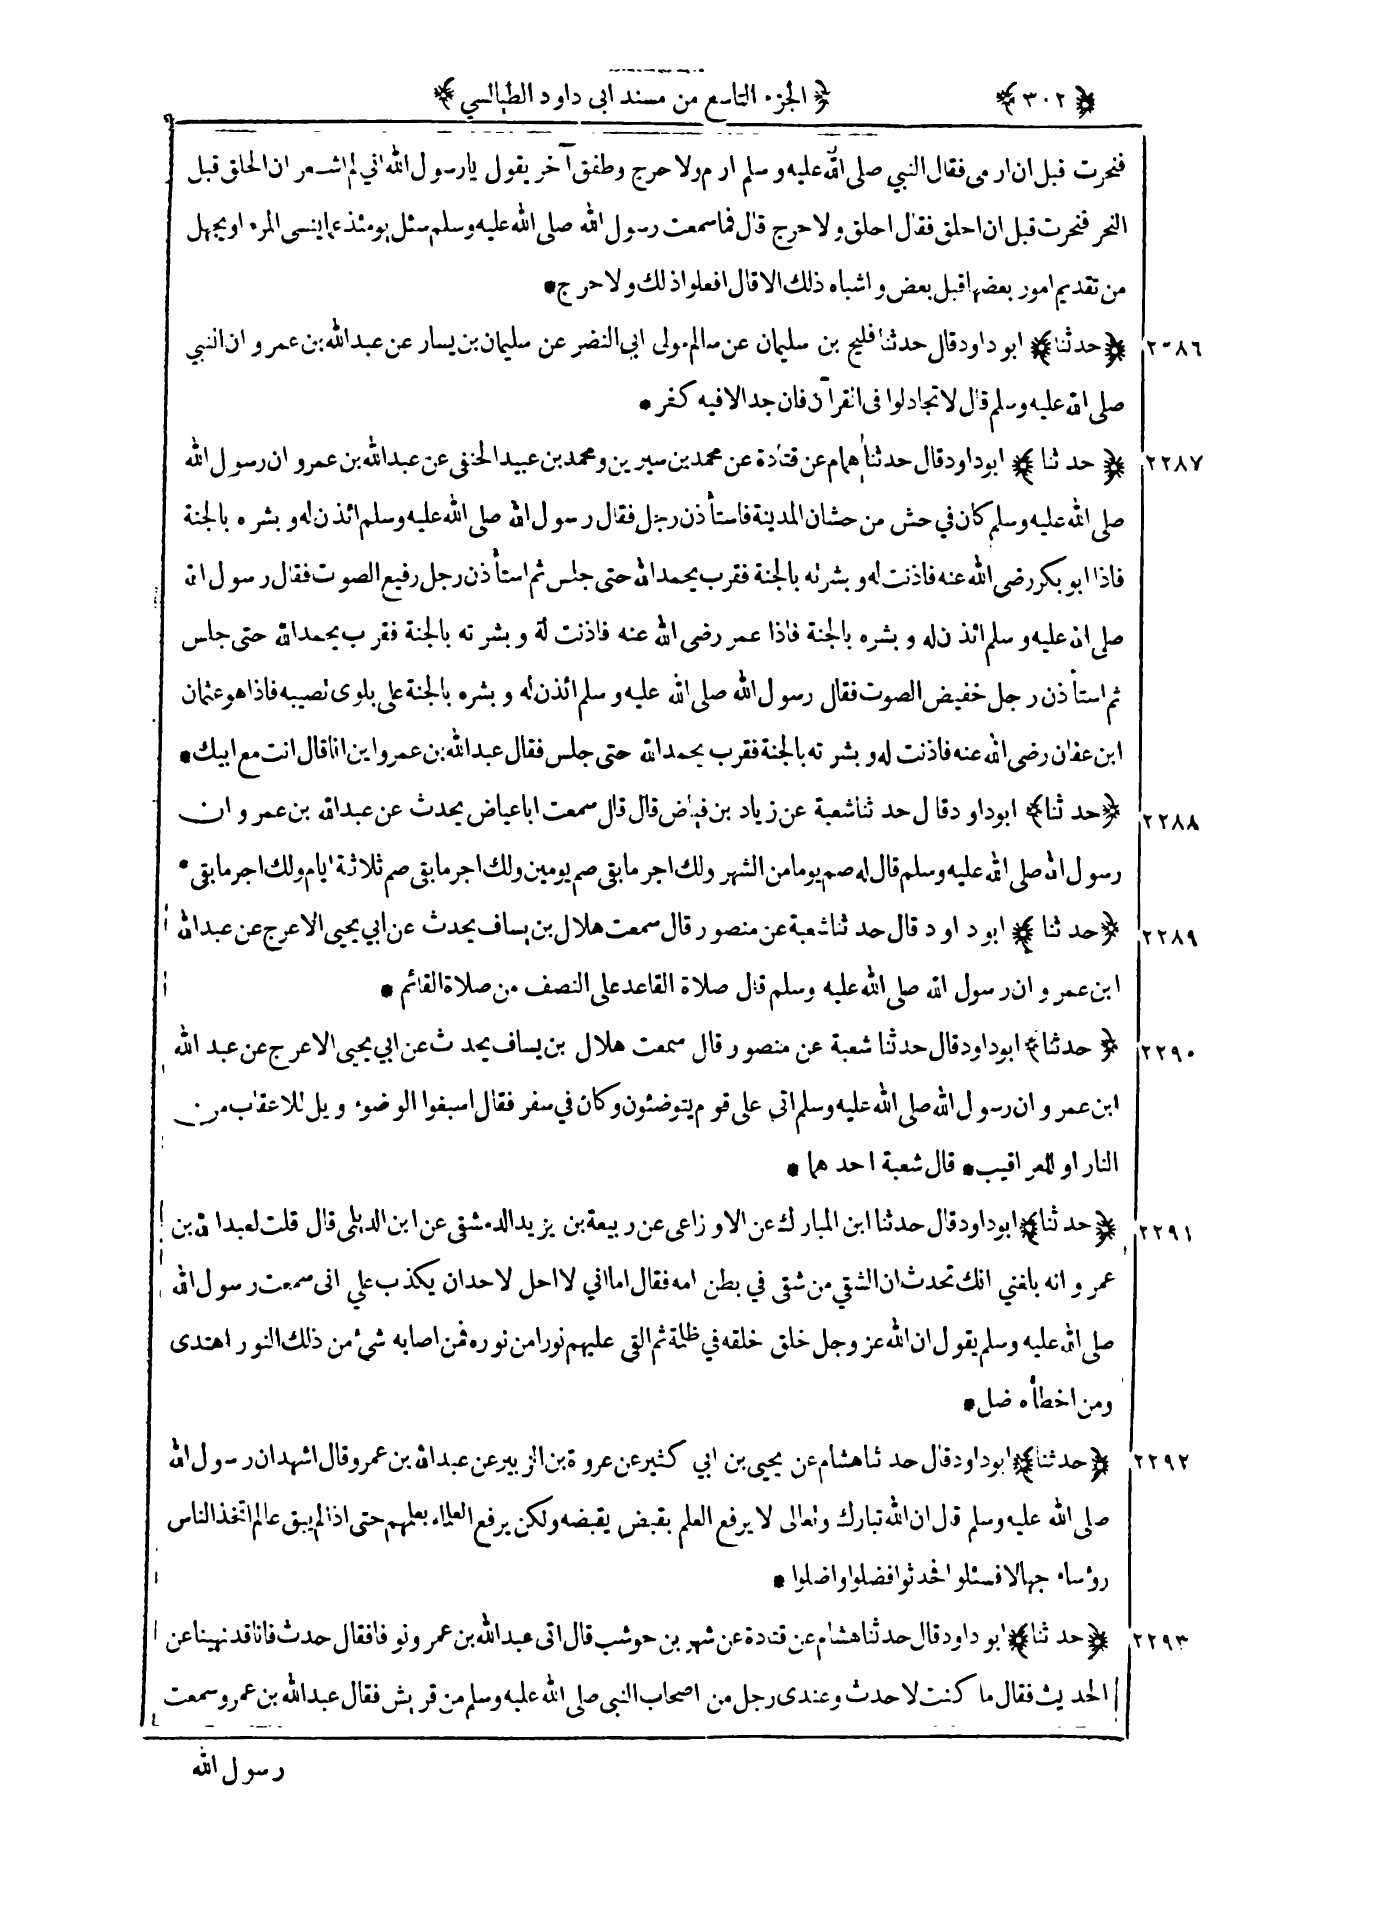 ﴿٣٠٢﴾ ﴿الجزء التاسع من مسند ابى داود الطيالسي﴾
فنحرت قبل ان ارمى فقال النبي صلى الله عليه وسلم ارم ولا حرج وطفق آخر يقول يا رسول الله اني لم اشعر ان الحلق قبل
النحر فنحرت قبل ان احلق فقال احلق ولا حرج قال فما سمعت رسول الله صلى الله عليه وسلم سئل يومئذ عما ينسى المرء او يجهل
من تقديم امور بعضها قبل بعض واشباه ذلك الا قال افعلوا ذلك ولا حرج *
٢٢٨٦ ﴿حدثنا﴾ ابو داود قال حدثنا فليح بن سليمان عن سالم مولى ابى النضر عن سليمان بن يسار عن عبدالله بن عمرو ان النبي
صلى الله عليه وسلم قال لا تجادلوا فى القرآن فان جدالا فيه كفر *
٢٢٨٧ ﴿حدثنا﴾ ابوداود قال حدثنا همام عن قتادة عن محمد بن سيرين ومحمد بن عبيد الحنفى عن عبدالله بن عمرو ان رسول الله
صلى الله عليه وسلم كان في حش من حشان المدينة فاستأذن رجل فقال رسول الله صلى الله عليه وسلم ائذن له وبشره بالجنة
فاذا ابو بكر رضى الله عنه فاذنت له وبشرته بالجنة فقرب يحمد الله حتى جلس ثم استأذن رجل رفيع الصوت فقال رسول الله
صلى الله عليه وسلم ائذن له وبشره بالجنة فاذا عمر رضى الله عنه فاذنت له وبشرته بالجنة فقرب يحمد الله حتى جلس
ثم استأذن رجل خفيض الصوت فقال رسول الله صلى الله عليه وسلم ائذن له وبشره بالجنة على بلوى تصيبه فاذا هو عثمان
ابن عفان رضى الله عنه فاذنت له وبشرته بالجنة فقرب يحمد الله حتى جلس فقال عبدالله بن عمرو اين انا قال انت مع ابيك *
٢٢٨٨ ﴿حدثنا﴾ ابوداود قال حدثنا شعبة عن زياد بن فياض قال قال سمعت ابا عياض يحدث عن عبدالله بن عمرو ان
رسول الله صلى الله عليه وسلم قال له صم يوما من الشهر ولك اجر ما بقى صم يومين ولك اجر ما بقى صم ثلاثة ايام ولك اجر ما بقى *
٢٢٨٩ ﴿حدثنا﴾ ابو داود قال حدثنا شعبة عن منصور قال سمعت هلال بن يساف يحدث عن ابي يحيى الاعرج عن عبدالله
ابن عمرو ان رسول الله صلى الله عليه وسلم قال صلاة القاعد على النصف من صلاة القائم *
٢٢٩٠ ﴿حدثنا﴾ ابوداود قال حدثنا شعبة عن منصور قال سمعت هلال بن يساف يحدث عن ابي يحيى الاعرج عن عبد الله
ابن عمرو ان رسول الله صلى الله عليه وسلم اتى على قوم يتوضئون وكان في سفر فقال اسبغوا الوضوء ويل للاعقاب من
النار او للعراقيب * قال شعبة احدهما *
٢٢٩١ ﴿حدثنا﴾ ابوداود قال حدثنا ابن المبارك عن الاوزاعى عن ربيعة بن يزيد الدمشقى عن ابن الديلى قال قلت لعبد الله بن
عمرو انه بلغني انك تحدث ان الشقي من شقى في بطن امه فقال اما اني لا احل لاحد ان يكذب علي انى سمعت رسول الله
صلى الله عليه وسلم يقول ان الله عز وجل خلق خلقه في ظلمة ثم القى عليهم نورا من نوره فمن اصابه شئ من ذلك النور اهتدى
ومن اخطأه ضل *
٢٢٩٢ ﴿حدثنا﴾ ابوداود قال حدثنا هشام عن يحيى بن ابي كثير عن عروة بن الزبير عن عبد الله بن عمرو قال اشهد ان رسول الله
صلى الله عليه وسلم قال ان الله تبارك وتعالى لا يرفع العلم بقبض يقبضه ولكن يرفع العلماء بعلمهم حتى اذا لم يبق عالم اتخذ الناس
رؤساء جهالا فسئلوا فحدثوا فضلوا واضلوا *
٢٢٩٣ ﴿حدثنا﴾ ابو داود قال حدثنا هشام عن قتادة عن شهر بن حوشب قال اتى عبدالله بن عمرو نوفا فقال حدث فانا قد نهينا عن
الحديث فقال ما كنت لاحدث وعندى رجل من اصحاب النبي صلى الله عليه وسلم من قريش فقال عبدالله بن عمرو سمعت
رسول الله